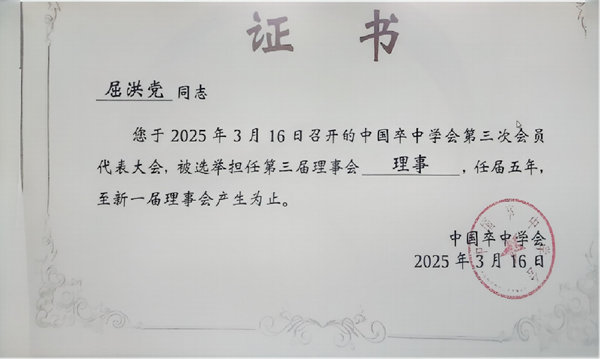 证书
屈洪党 同志
您于 2025 年 3 月 16 日召开的中国卒中学会第三次会员
代表大会，被选举担任第三届理事会 理事 ，任届五年，
至新一届理事会产生为止。
中国卒中学会
2025 年 3 月 16 日
中国卒中学会